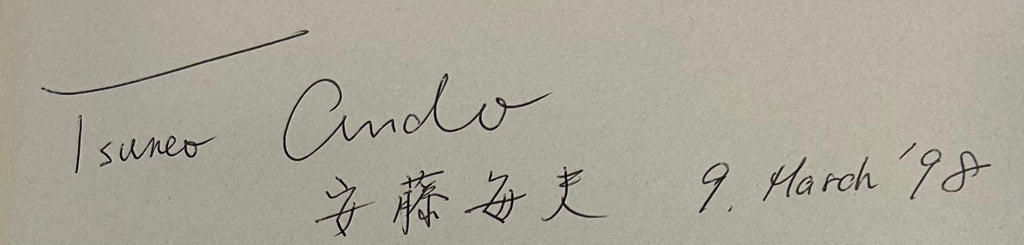 Tsuneo Ando
安藤毎夫 9. March '98